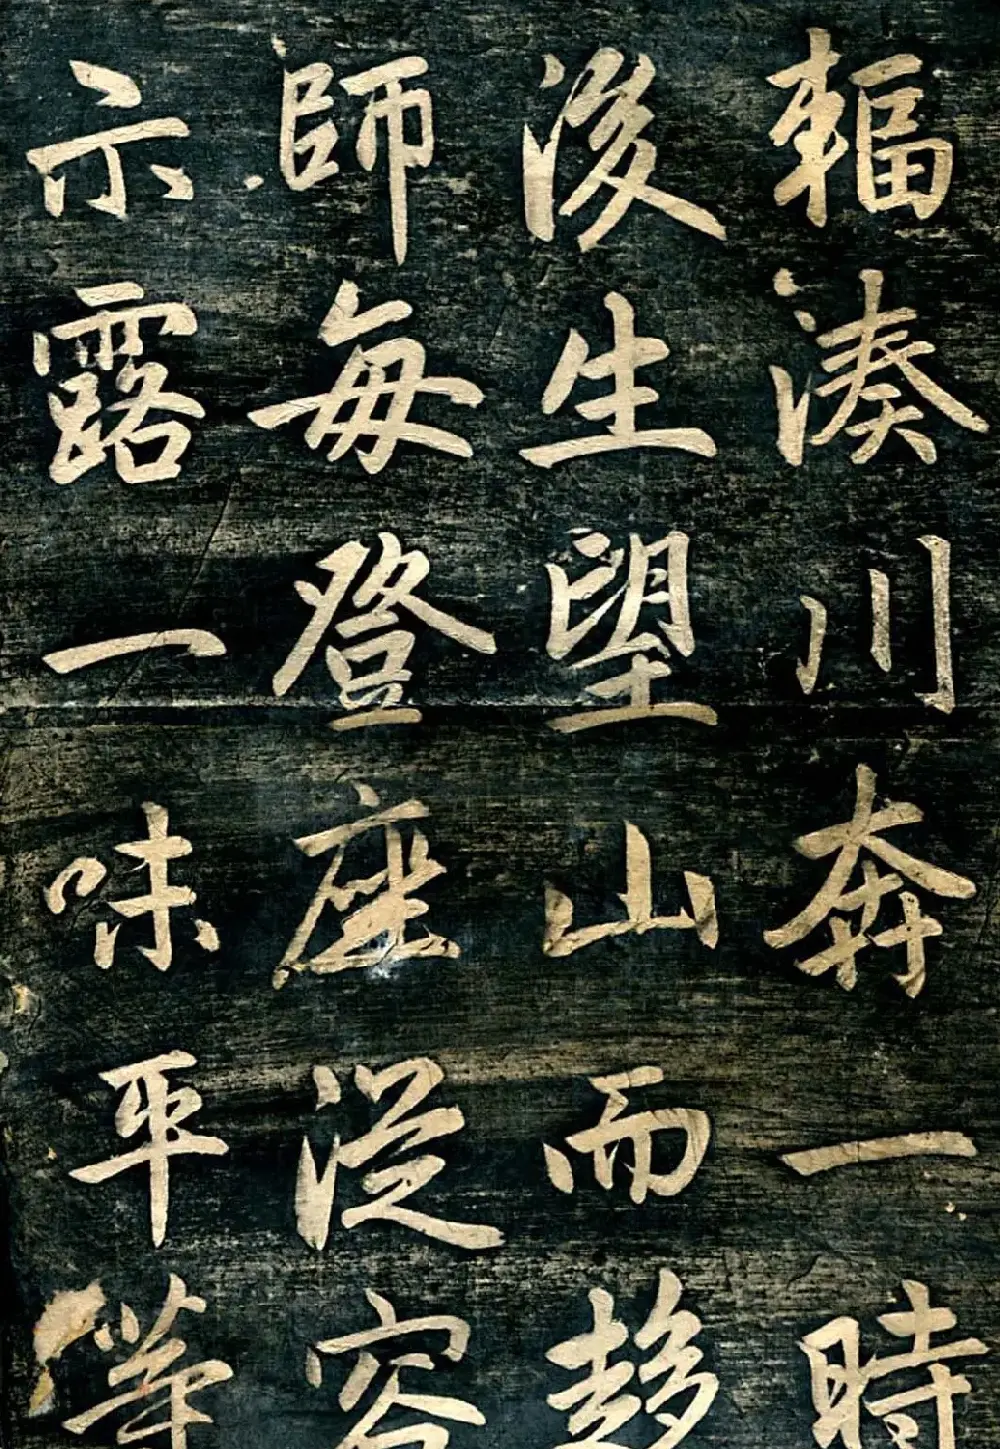 輻湊川奔一時
後生望山而趍
師每登座從容
示露一味平等